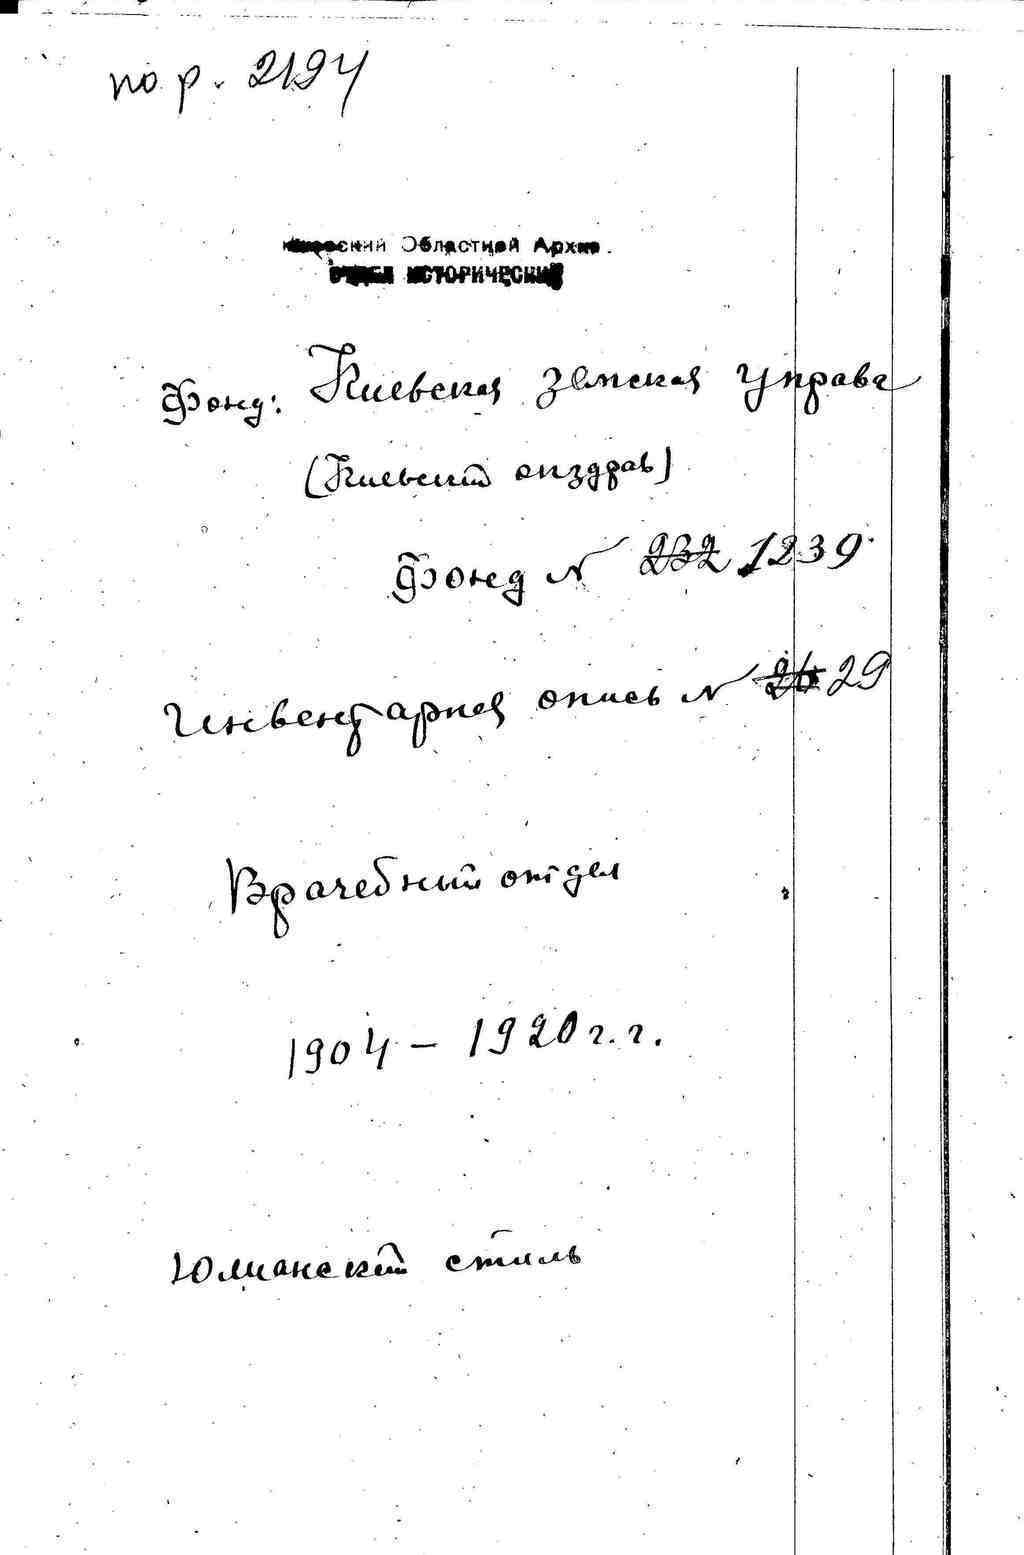 по р. 2194
Областной Архив.
ОТДЕЛ ИСТОРИЧЕСКИЙ
Фонд: Киевская земская управа
(Киевский опздрав)
Фонд N 232 1239
Инвентарная опись N 26 29
Врачебный отдел
1904 – 1920 г.г.
Юлианский стиль